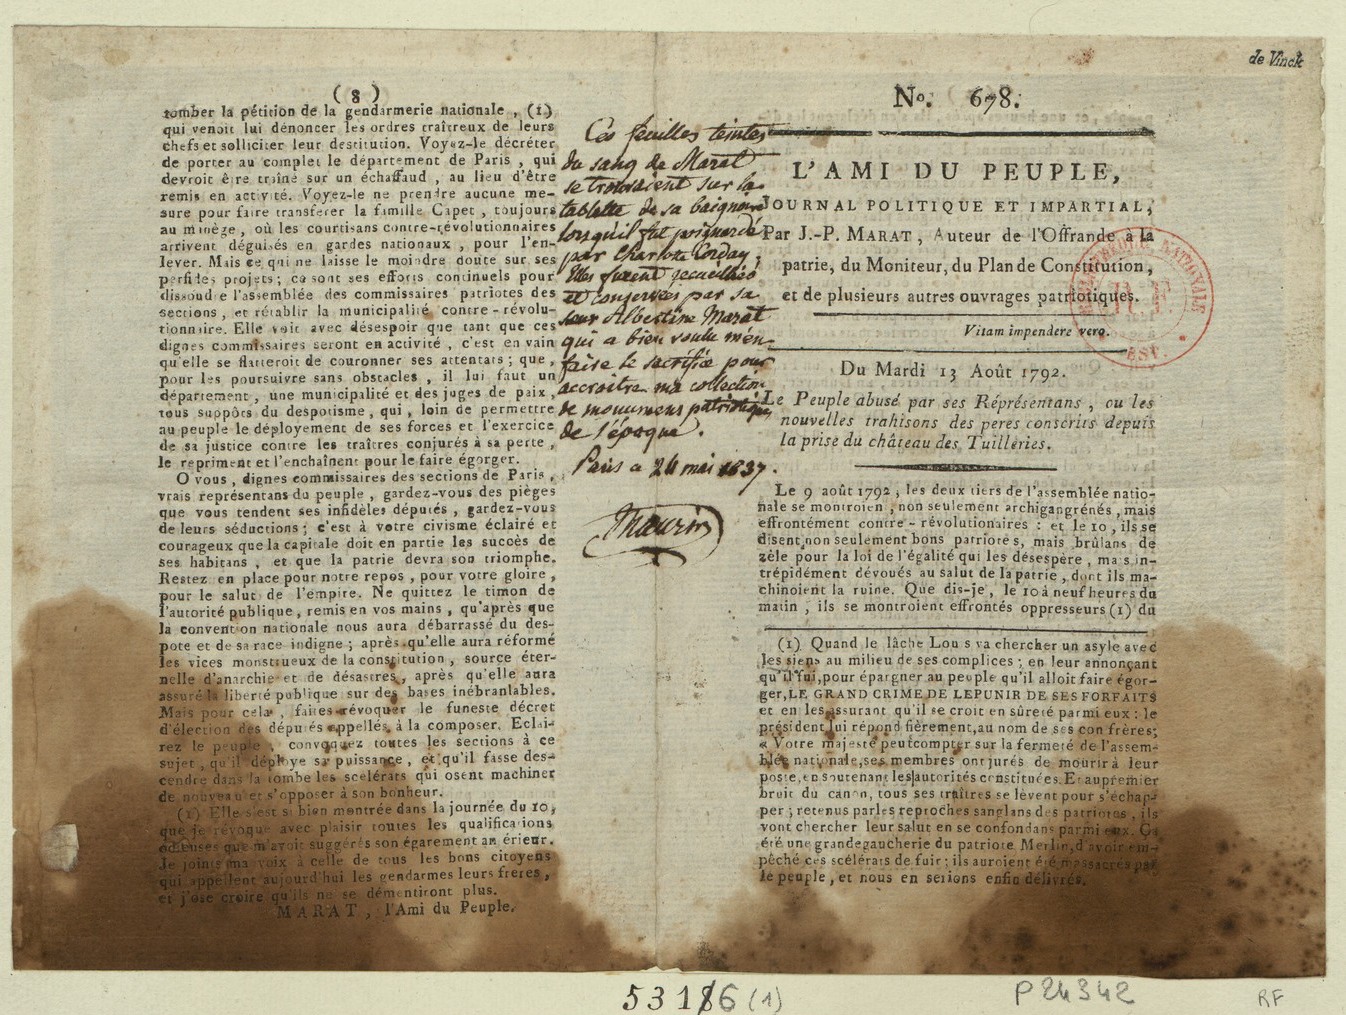 de Vinck
( 8 )
tomber la pétition de la gendarmerie nationale , (1)
qui venoit lui dénoncer les ordres traîtreux de leurs
chefs et solliciter leur destitution. Voyez-le décréter
de porter au complet le département de Paris , qui
devroit être traîné sur un échaffaud , au lieu d'être
remis en activité. Voyez-le ne prendre aucune me-
sure pour faire transférer la famille Capet , toujours
au manège, où les courtisans contre-révolutionnaires
arrivent déguisés en gardes nationaux , pour l'en-
lever. Mais ce qui ne laisse le moindre doute sur ses
perfides projets ; ce sont ses efforts continuels pour
dissoudre l'assemblée des commissaires patriotes des
sections , et rétablir la municipalité contre-révolu-
tionnaire. Elle voit avec désespoir que tant que ces
dignes commissaires seront en activité , c'est en vain
qu'elle se flatteroit de couronner ses attentats ; que,
pour les poursuivre sans obstacles , il lui faut un
département , une municipalité et des juges de paix,
tous suppôts du despotisme , qui , loin de permettre
au peuple le déployement de ses forces et l'exercice
de sa justice contre les traîtres conjurés à sa perte ,
le repriment et l'enchaînent pour le faire égorger.
O vous , dignes commissaires des sections de Paris ,
vrais représentans du peuple , gardez-vous des pièges
que vous tendent ses infidèles députés , gardez-vous
de leurs séductions ; c'est à votre civisme éclairé et
courageux que la capitale doit en partie les succès de
ses habitans , et que la patrie devra son triomphe.
Restez en place pour notre repos , pour votre gloire ,
pour le salut de l'empire. Ne quittez le timon de
l'autorité publique , remis en vos mains , qu'après que
la convention nationale nous aura débarrassé du des-
pote et de sa race indigne ; après qu'elle aura réformé
les vices monstrueux de la constitution , source éter-
nelle d'anarchie et de désastres , après qu'elle aura
assuré la liberté publique sur des bases inébranlables.
Mais pour cela , faites révoquer le funeste décret
d'élection des députés appellés à la composer. Eclai-
rez le peuple , convoquez toutes les sections à ce
sujet , qu'il déploye sa puissance , et qu'il fasse des-
cendre dans la tombe les scélérats qui osent machiner
de nouveau et s'opposer à son bonheur.
(1) Elle s'est si bien montrée dans la journée du 10,
que je révoque avec plaisir toutes les qualifications
odieuses que m'avoit suggérés son égarement antérieur.
Je joins ma voix à celle de tous les bons citoyens
qui appellent aujourd'hui les gendarmes leurs frères ,
et j'ose croire qu'ils ne se démentiront plus.
MARAT , l'Ami du Peuple.
Ces feuilles teintes
du sang de Marat
se trouvaient sur la
tablette de sa baignoire
lorsqu'il fut poignardé
par Charlotte Corday ;
Elles furent recueillies
et conservées par sa
sœur Albertine Marat
qui a bien voulu m'en
faire le sacrifice pour
accroître ma collection
de monumens patriotiques
de l'époque.
Paris ce 24 mai 1837.
Maurin
No. 678.
L'AMI DU PEUPLE,
JOURNAL POLITIQUE ET IMPARTIAL,
Par J.-P. MARAT , Auteur de l'Offrande à la
patrie, du Moniteur, du Plan de Constitution,
et de plusieurs autres ouvrages patriotiques.
Vitam impendere vero.
Du Mardi 13 Août 1792.
Le Peuple abusé par ses Réprésentans , ou les
nouvelles trahisons des peres conscrits depuis
la prise du château des Tuilleries.
Le 9 août 1792 , les deux tiers de l'assemblée natio-
nale se montroien , non seulement archigangrénés , mais
effrontément contre-révolutionaires : et le 10 , ils se
disent non seulement bons patriotes, mais brûlans de
zèle pour la loi de l'égalité qui les désespère , mais in-
trépidément dévoués au salut de la patrie , dont ils ma-
chinoient la ruine. Que dis-je , le 10 à neuf heures du
matin , ils se montroient effrontés oppresseurs (1) du
(1) Quand le lâche Louis va chercher un asyle avec
les siens au milieu de ses complices ; en leur annonçant
qu'il fui, pour épargner au peuple qu'il alloit faire égor-
ger, LE GRAND CRIME DE LE PUNIR DE SES FORFAITS
et en les assurant qu'il se croit en sûreté parmi eux : le
président lui répond fièrement, au nom de ses confrères;
« Votre majesté peut compter sur la fermeté de l'assem-
blée nationale, ses membres ont jurés de mourir à leur
poste, en soutenant les autorités constituées. Et au premier
bruit du canon, tous ses traîtres se lèvent pour s'échap-
per ; retenus par les reproches sanglans des patriotes , ils
vont chercher leur salut en se confondans parmi eux. Ç'a
été une grande gaucherie du patriote Merlin, d'avoir em-
pêché ces scélérats de fuir ; ils auroient été massacrés par
le peuple , et nous en serions enfin délivrés.
R.F.
NATIONALE
EST.
53186 (1)
P24342
RF